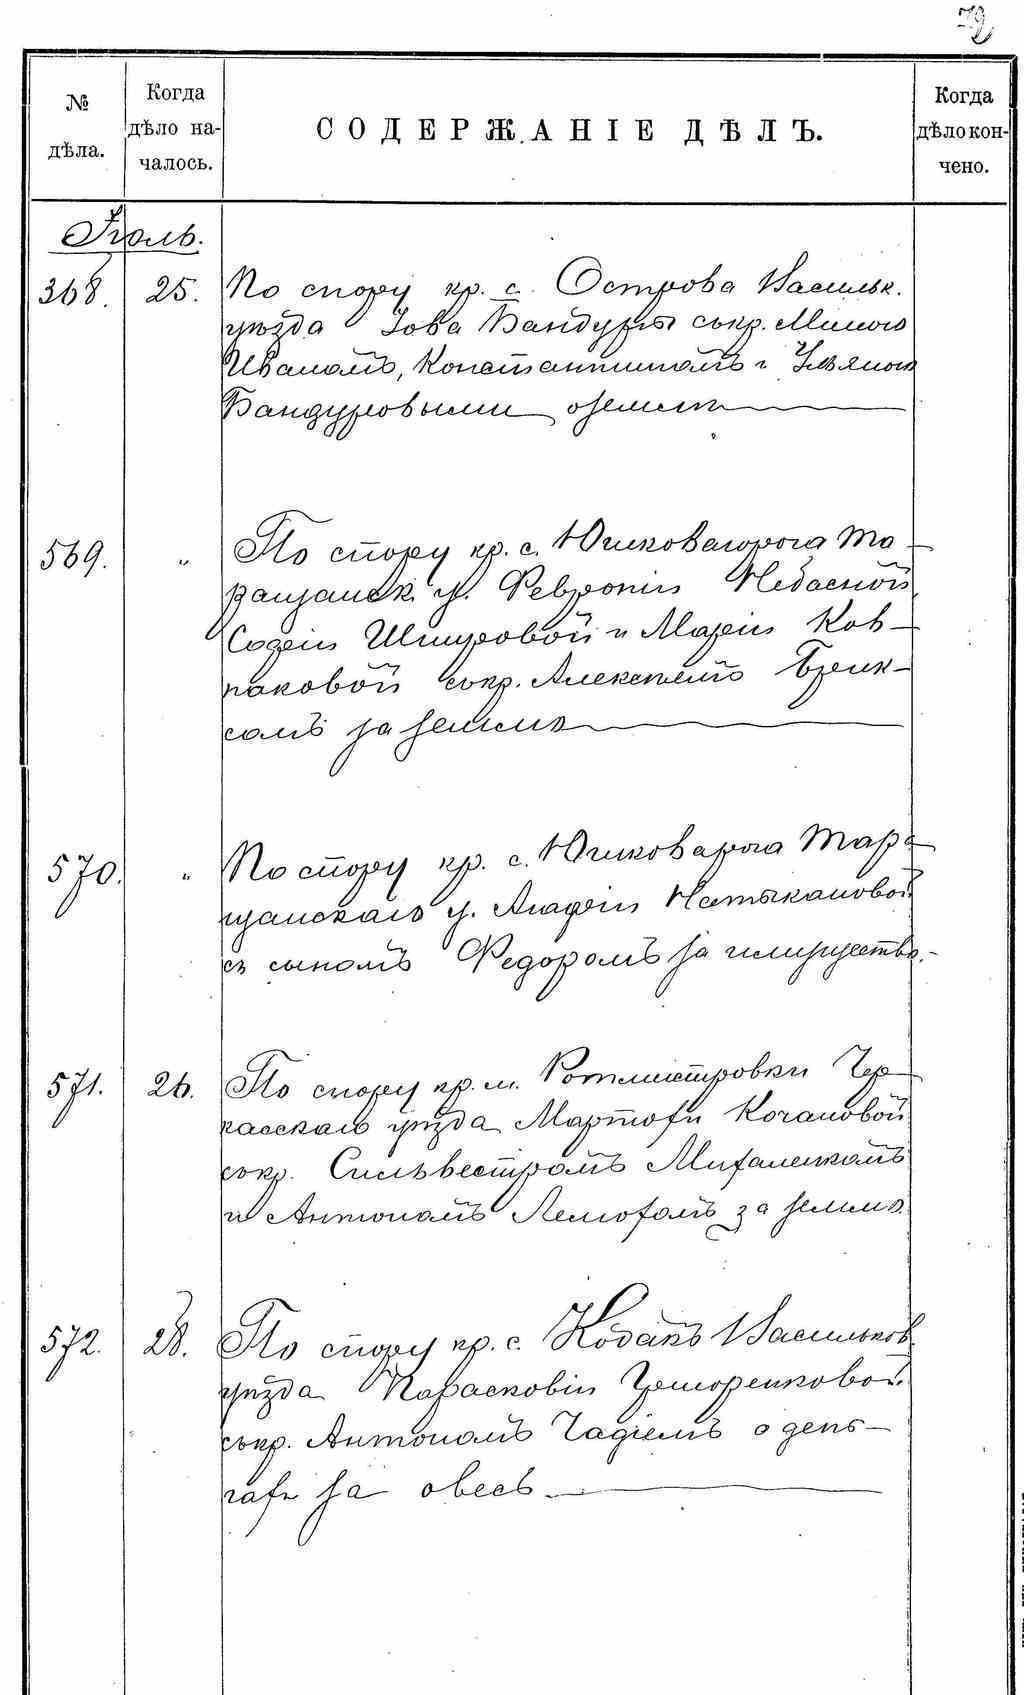 79
№ дѣла.
Когда дѣло на-
чалось.
СОДЕРЖАНІЕ ДѢЛЪ.
Когда дѣло кон-
чено.
Іюль.
368. 25. По спору кр. с. Острова Васильк.
уѣзда Іова Бандуры съ кр.
Иваномъ, Константиномъ и
Бандуровыми о землѣ
569. " По спору кр. с. Юшковагорога Та-
ращанск. у. Февроніи Небасной,
Софіи и Маріи Ков-
паковой съ кр. Алексѣемъ Брик-
сомъ за землю
570. " По спору кр. с. Юшковарога Тара
щанскаго у. Агафіи Нетыкановой
съ сыномъ Федоромъ за имущество.
571. 26. По спору кр. м. Ротмистровки Чер-
касскаго уѣзда Мартохи Кочановой
съ кр. Сильвестромъ
и Антономъ за землю.
572. 28. По спору кр. с. Кодакъ Васильков.
уѣзда Парасковіи
съ кр. Антономъ о день-
гахъ за овесъ